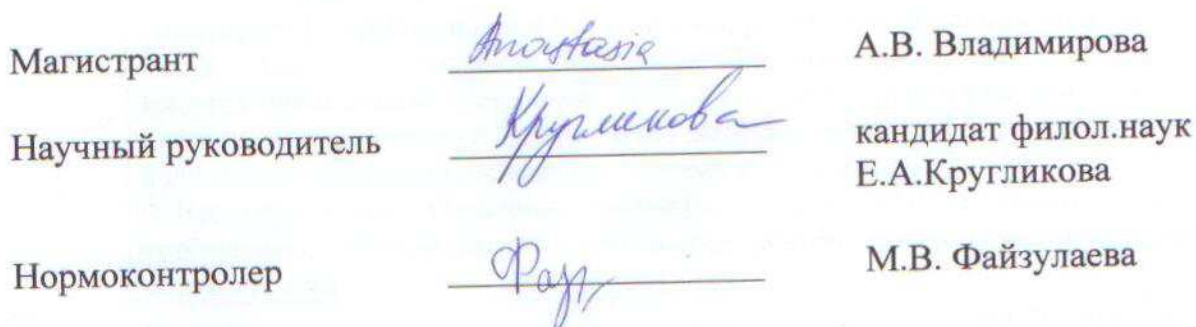 Магистрант Anastasia А.В. Владимирова
Научный руководитель Кругликова кандидат филол.наук
Е.А.Кругликова
Нормоконтролер М.В. Файзулаева